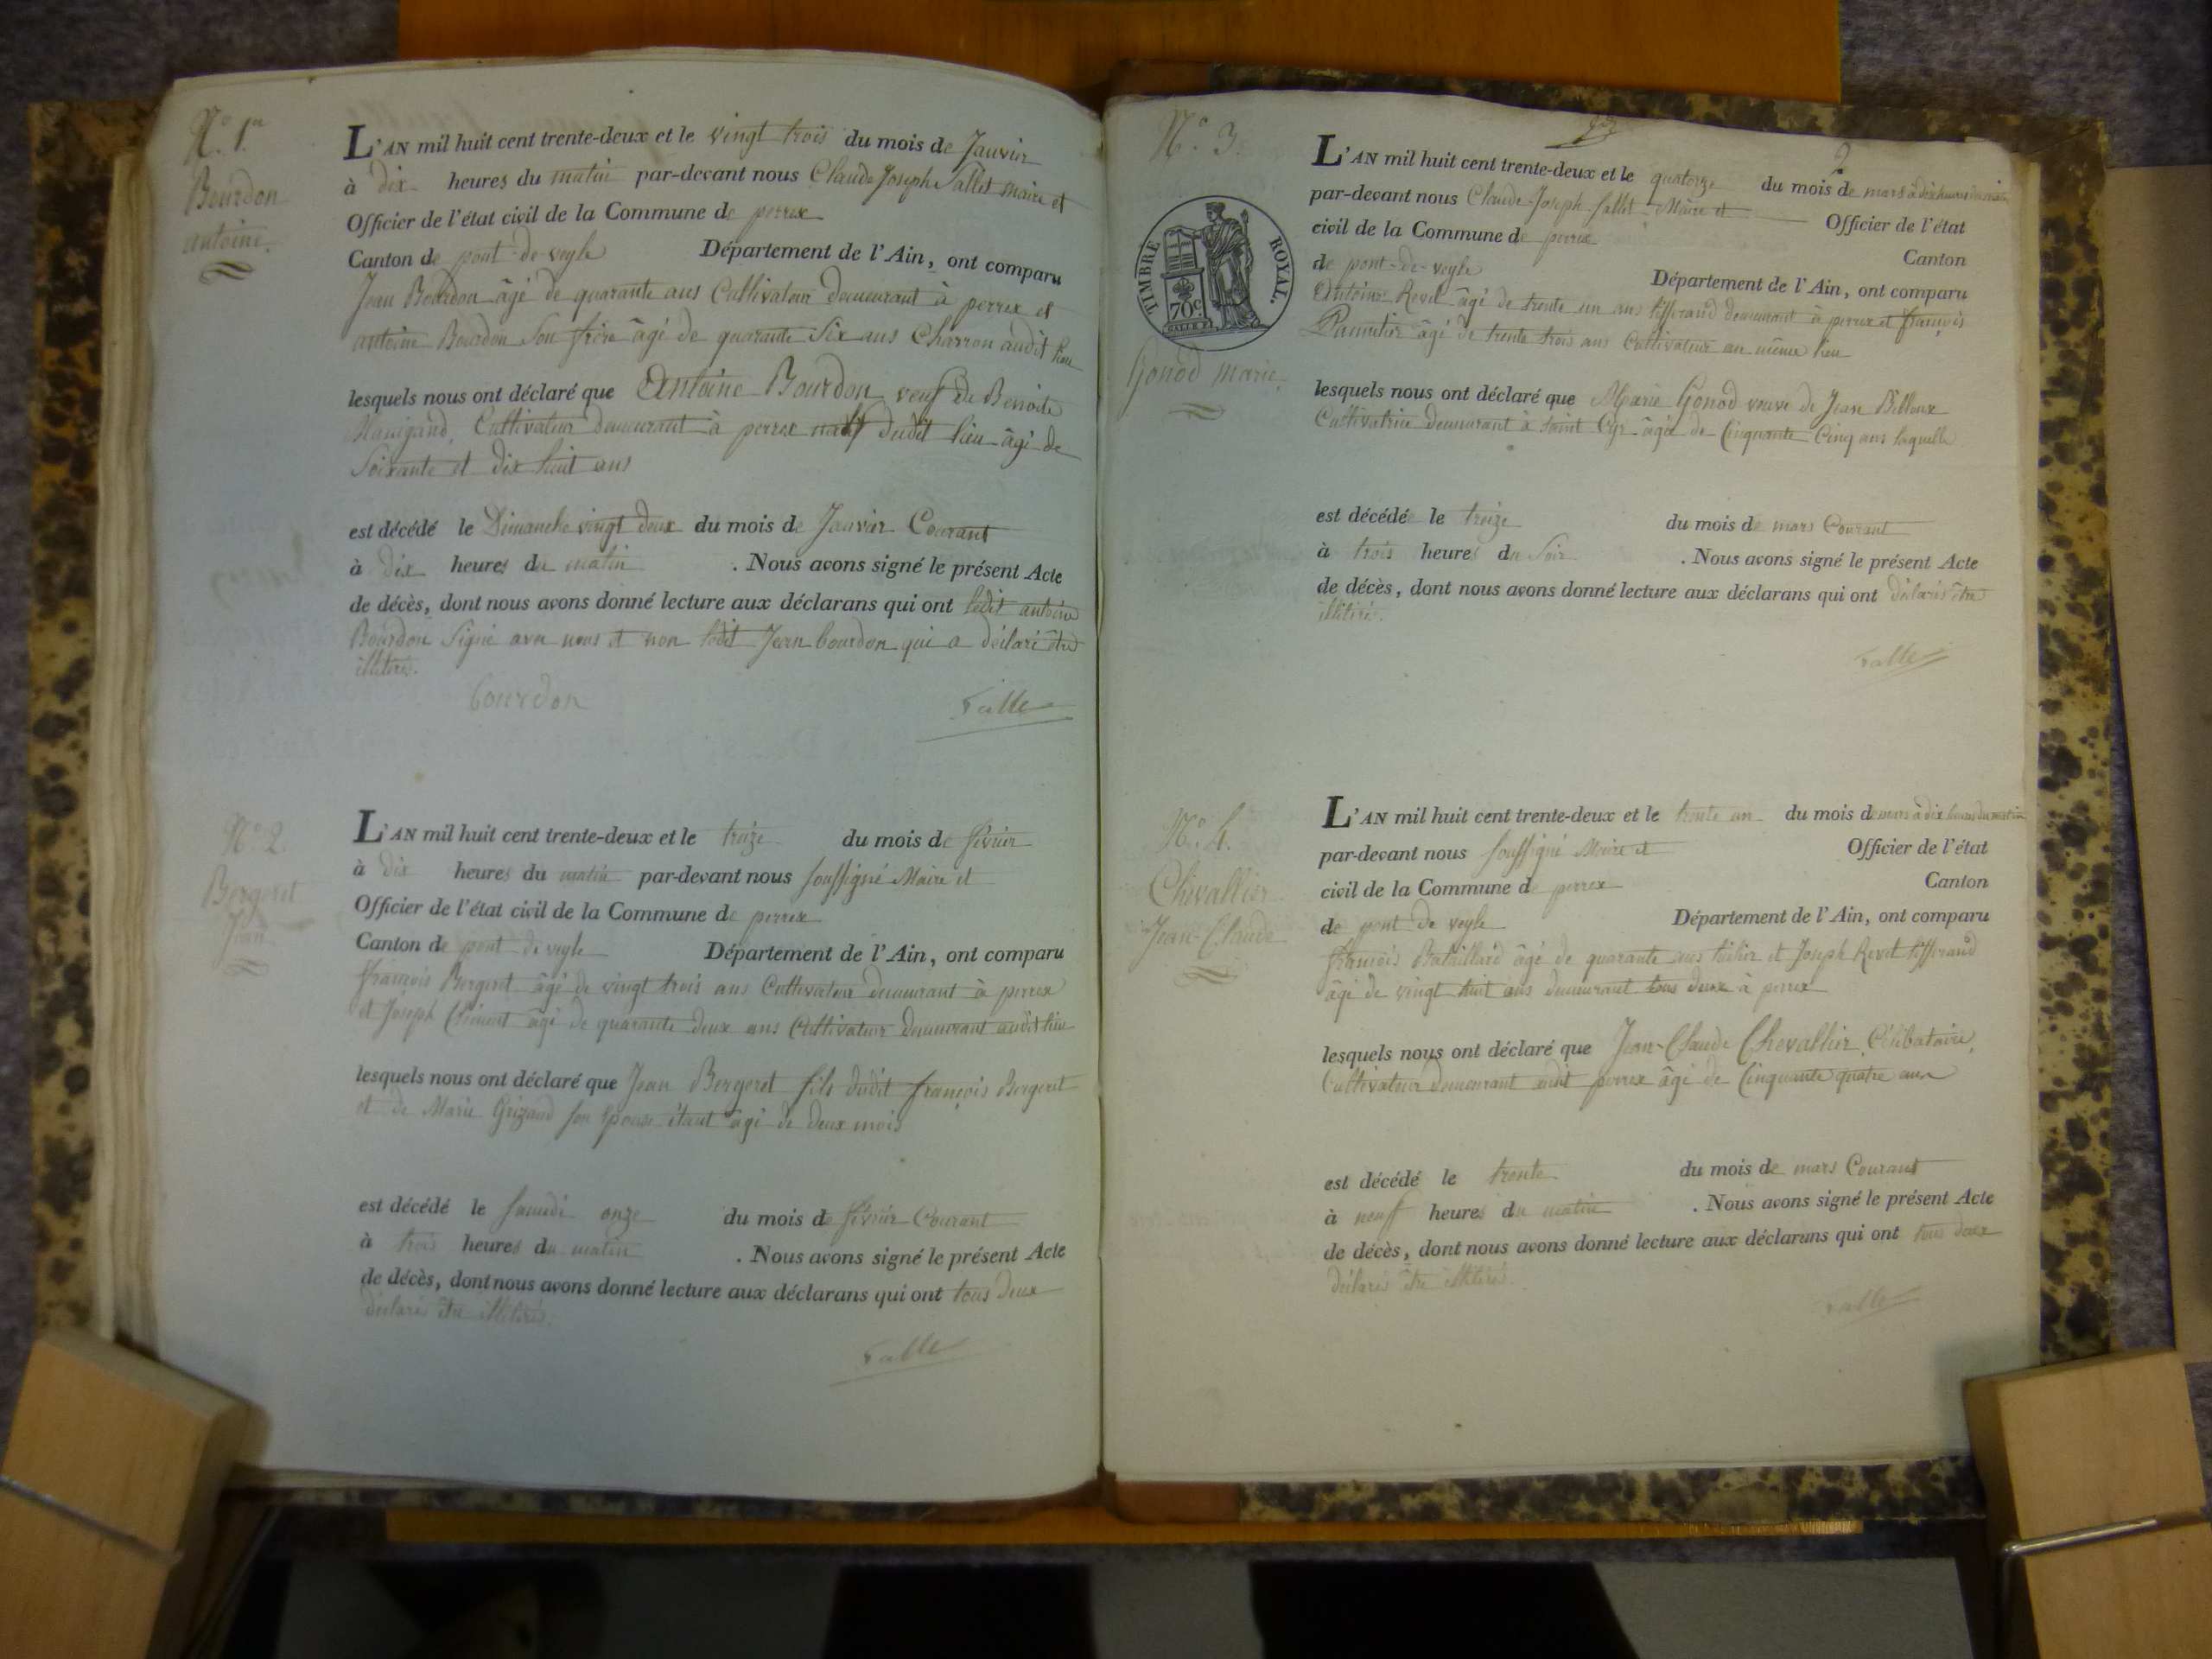 N.° 1.er
Bourdon
antoine.
L'AN mil huit cent trente-deux et le vingt trois du mois de Janvier
à dix heures du matin par-devant nous Claude Joseph Sallet maire et
Officier de l'état civil de la Commune de perrex
Canton de pont-de-veyle Département de l'Ain, ont comparu
Jean Bourdon âgé de quarante ans Cultivateur demeurant à perrex et
antoine Bourdon Son frère âgé de quarante Six ans Charron audit lieu
lesquels nous ont déclaré que Antoine Bourdon veuf De Benoite
Cultivateur demeurant à perrex natif dudit lieu âgé de
Soixante et dix huit ans
est décédé le Dimanche vingt deux du mois de Janvier Courant
à dix heures du matin . Nous avons signé le présent Acte
de décès, dont nous avons donné lecture aux déclarans qui ont ledit antoine
Bourdon Signé avec nous et non ledit Jean bourdon qui a déclaré être
illitéré.
bourdon
N.° 2.
Bergeret
Jean
L'AN mil huit cent trente-deux et le treize du mois de février
à dix heures du matin par-devant nous soussigné Maire et
Officier de l'état civil de la Commune de perrex
Canton de pont de veyle Département de l'Ain, ont comparu
françois Bergeret âgé de vingt trois ans Cultivateur demeurant à perrex
et Joseph âgé de quarante deux ans Cultivateur demeurant audit lieu
lesquels nous ont déclaré que Jean Bergeret fils dudit françois Bergeret
et de Marie son épouse étant âgé de deux mois
est décédé le Samedi onze du mois de février Courant
à trois heures du matin . Nous avons signé le présent Acte
de décès, dont nous avons donné lecture aux déclarans qui ont tous deux
déclaré être illitérés.
N.° 3.
TIMBRE ROYAL.
70c.
Gonod marie.
2
L'AN mil huit cent trente-deux et le quatorze du mois de mars à dix heures du matin
par-devant nous Claude-Joseph Sallet Maire et Officier de l'état
civil de la Commune de perrex Canton
de pont-de-veyle Département de l'Ain, ont comparu
Antoine Revel âgé de trente un ans tisserand demeurant à perrex et françois
âgé de trente trois ans Cultivateur au même lieu
lesquels nous ont déclaré que Marie Gonod veuve de Jean Billoux
Cultivatrice demeurant à saint Cyr âgée de Cinquante Cinq ans laquelle
est décédée le treize du mois de mars Courant
à trois heures du Soir . Nous avons signé le présent Acte
de décès, dont nous avons donné lecture aux déclarans qui ont déclarés être
illitéré.
N.° 4.
Chevallier
Jean-Claude
L'AN mil huit cent trente-deux et le trente un du mois de mars à dix heures du matin
par-devant nous soussigné Maire et Officier de l'état
civil de la Commune de perrex Canton
de pont de veyle Département de l'Ain, ont comparu
françois Bataillard âgé de quarante ans et Joseph Revel tisserand
âgé de vingt huit ans demeurant tous deux à perrex
lesquels nous ont déclaré que Jean-Claude Chevallier, Célibataire,
Cultivateur demeurant audit perrex âgé de Cinquante quatre ans
est décédé le trente du mois de mars Courant
à neuf heures du matin . Nous avons signé le présent Acte
de décès, dont nous avons donné lecture aux déclarans qui ont tous deux
déclaré être illitéré.